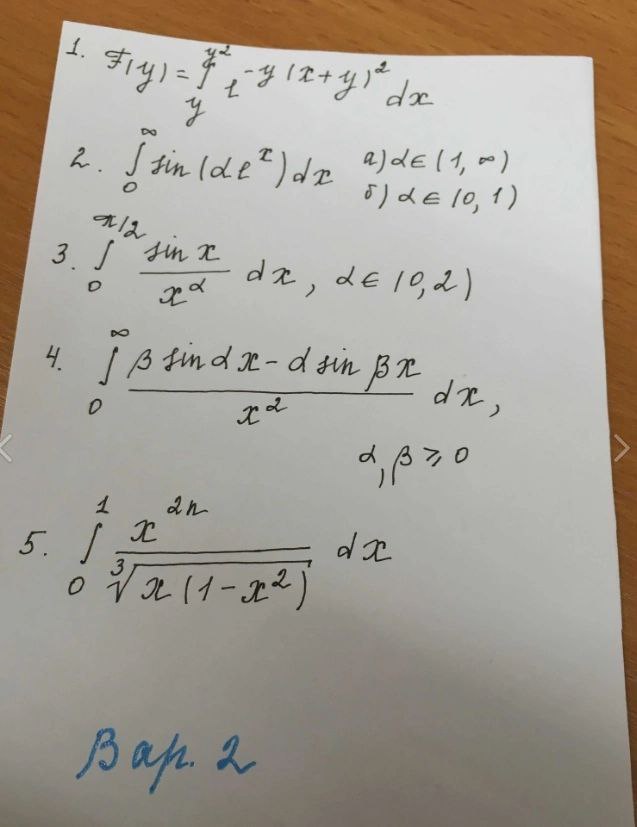 1. F(y) = ∫_y^{y^2} e^{-y(x+y)^2} dx
2. ∫_0^∞ sin(αe^x)dx а) α∈(1,∞)
б) α∈(0,1)
3. ∫_0^{π/2} \frac{sin x}{x^α} dx, α∈(0,2)
4. ∫_0^∞ \frac{β sin αx - α sin βx}{x^2} dx,
α, β ⩾ 0
5. ∫_0^1 \frac{x^{2n}}{\sqrt[3]{x(1-x^2)}} dx
Вар. 2